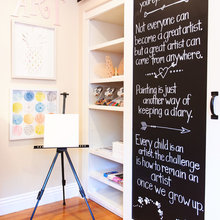 ART
Not everyone can
become a great artist,
but a great artist can
come from anywhere.
Painting is just
another way of
keeping a diary.
Every child is an
artist, the challenge
is how to remain an
artist
once we grow up.